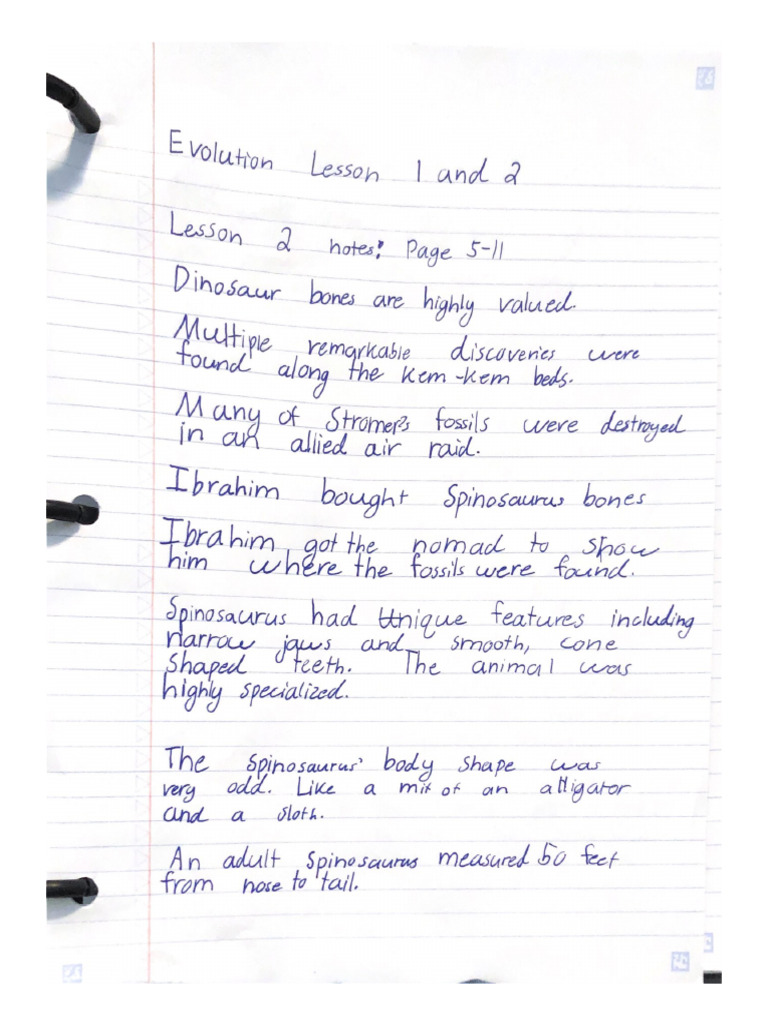 Evolution Lesson 1 and 2
Lesson 2 notes: Page 5-11
Dinosaur bones are highly valued.
Multiple remarkable discoveries were
found along the Kem-Kem beds.
Many of Stromer's fossils were destroyed
in an allied air raid.
Ibrahim bought Spinosaurus bones
Ibrahim got the nomad to show
him where the fossils were found.
Spinosaurus had Unique features including
narrow jaws and smooth, cone
shaped teeth. The animal was
highly specialized.
The Spinosaurus' body shape was
very odd. Like a mix of an alligator
and a sloth.
An adult Spinosaurus measured 50 feet
from nose to tail.